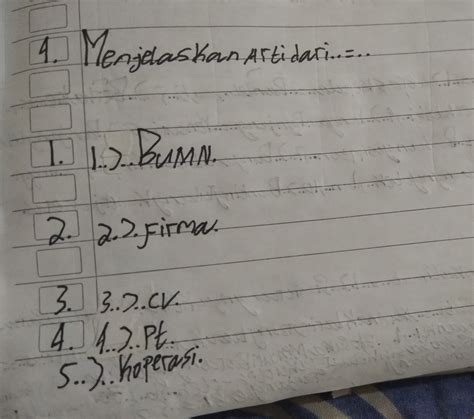 4. Menjelaskan Arti dari..=..
1. 1..). BUMN.
2. 2.). Firma.
3. 3..). CV.
4. 4..). Pt.
5..). Koperasi.